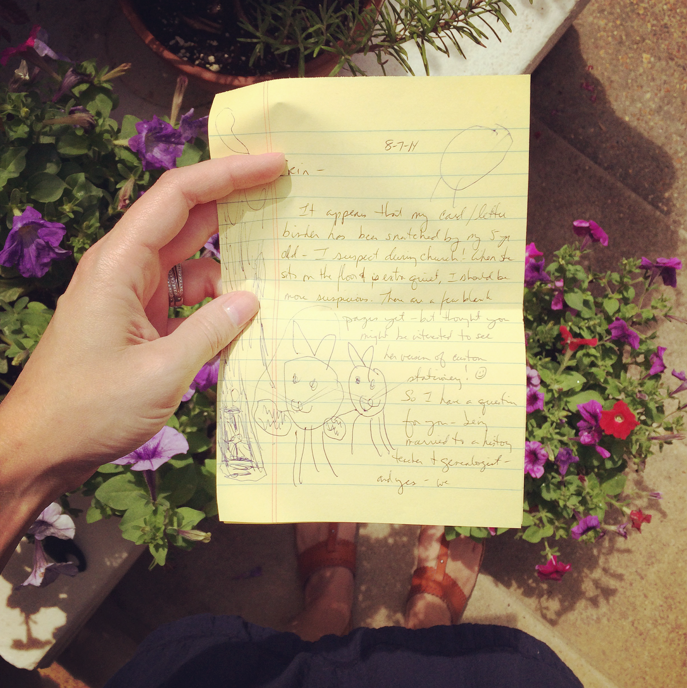 8-7-14
Ekin -
It appears that my card/letter
binder has been snatched by my 5 yr
old - I suspect during church! When she
sits on the floor & is extra quiet, I should be
more suspicious. There are a few blank
pages yet - but thought you
might be interested to see
her version of custom
stationery! ☺
So I have a question
for you - being
married to a history
teacher & genealogist -
and yes - we